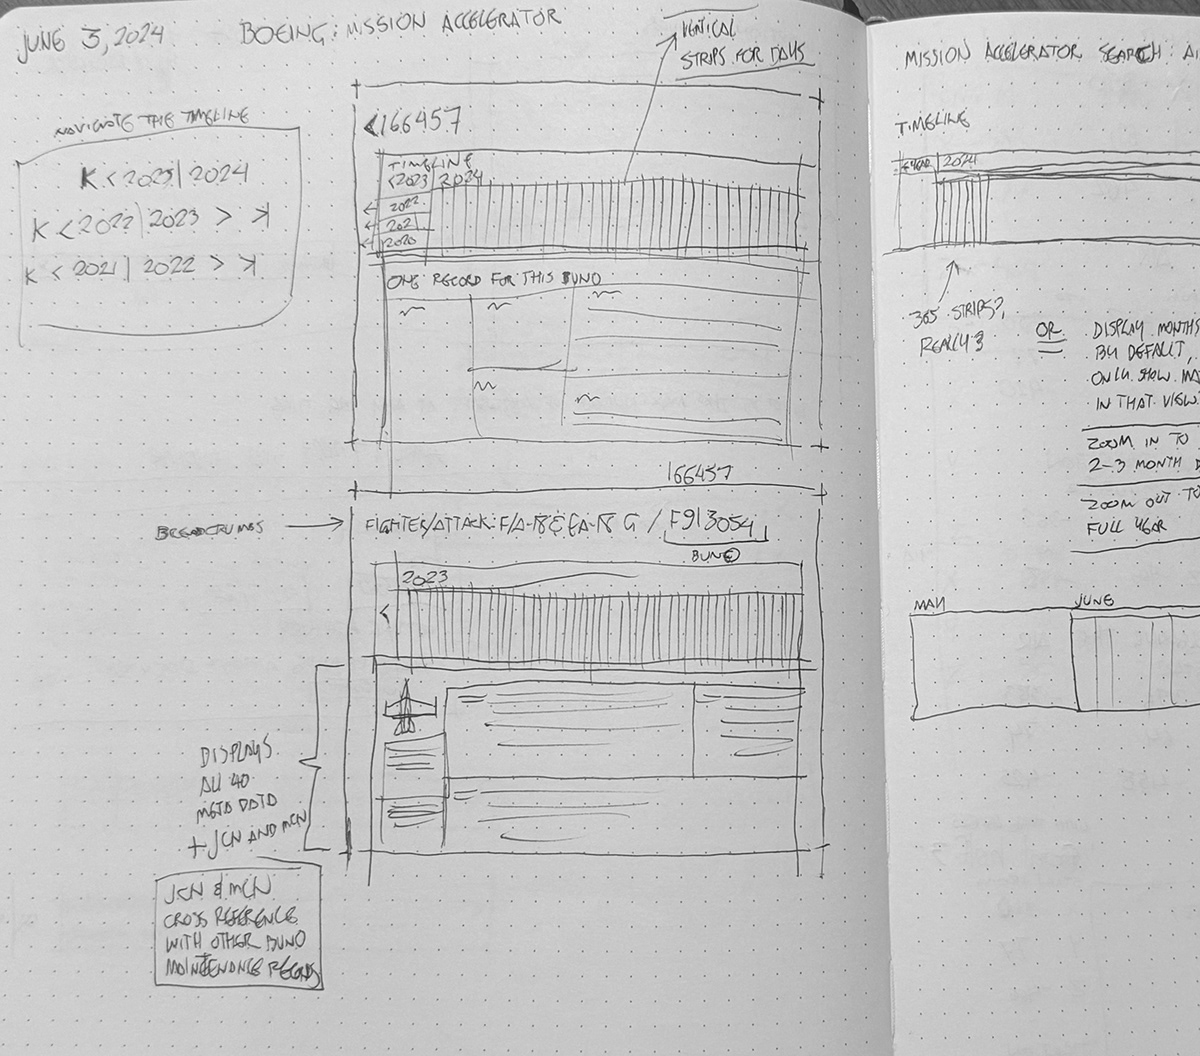 JUNE 3, 2024
BOEING: MISSION ACCELERATOR
VERTICAL
STRIPS FOR DAYS
NAVIGATE THE TIMELINE
K < 2023 | 2024
K < 2022 | 2023 > >|
K < 2021 | 2022 > >|
<166457
TIMELINE
<2023 | 2024
← 2022
← 2021
← 2020
ONE RECORD FOR THIS BUNO
166457
BREADCRUMBS
FIGHTER/ATTACK: F/A-18 & EA-18 G / F913054
BUNO
2023
<
DISPLAYS
ALL 40
META DATA
+ JCN AND MCN
JCN & MCN
CROSS REFERENCE
WITH OTHER BUNO
MAINTENANCE RECORDS
MISSION ACCELERATOR SEARCH:
TIMELINE
2024
365 STRIPS?,
REALLY?
OR
DISPLAY MONTHS
BY DEFAULT,
ONLY SHOW
IN THAT VIEW.
ZOOM IN TO
2-3 MONTH
ZOOM OUT TO
FULL YEAR
MAY
JUNE